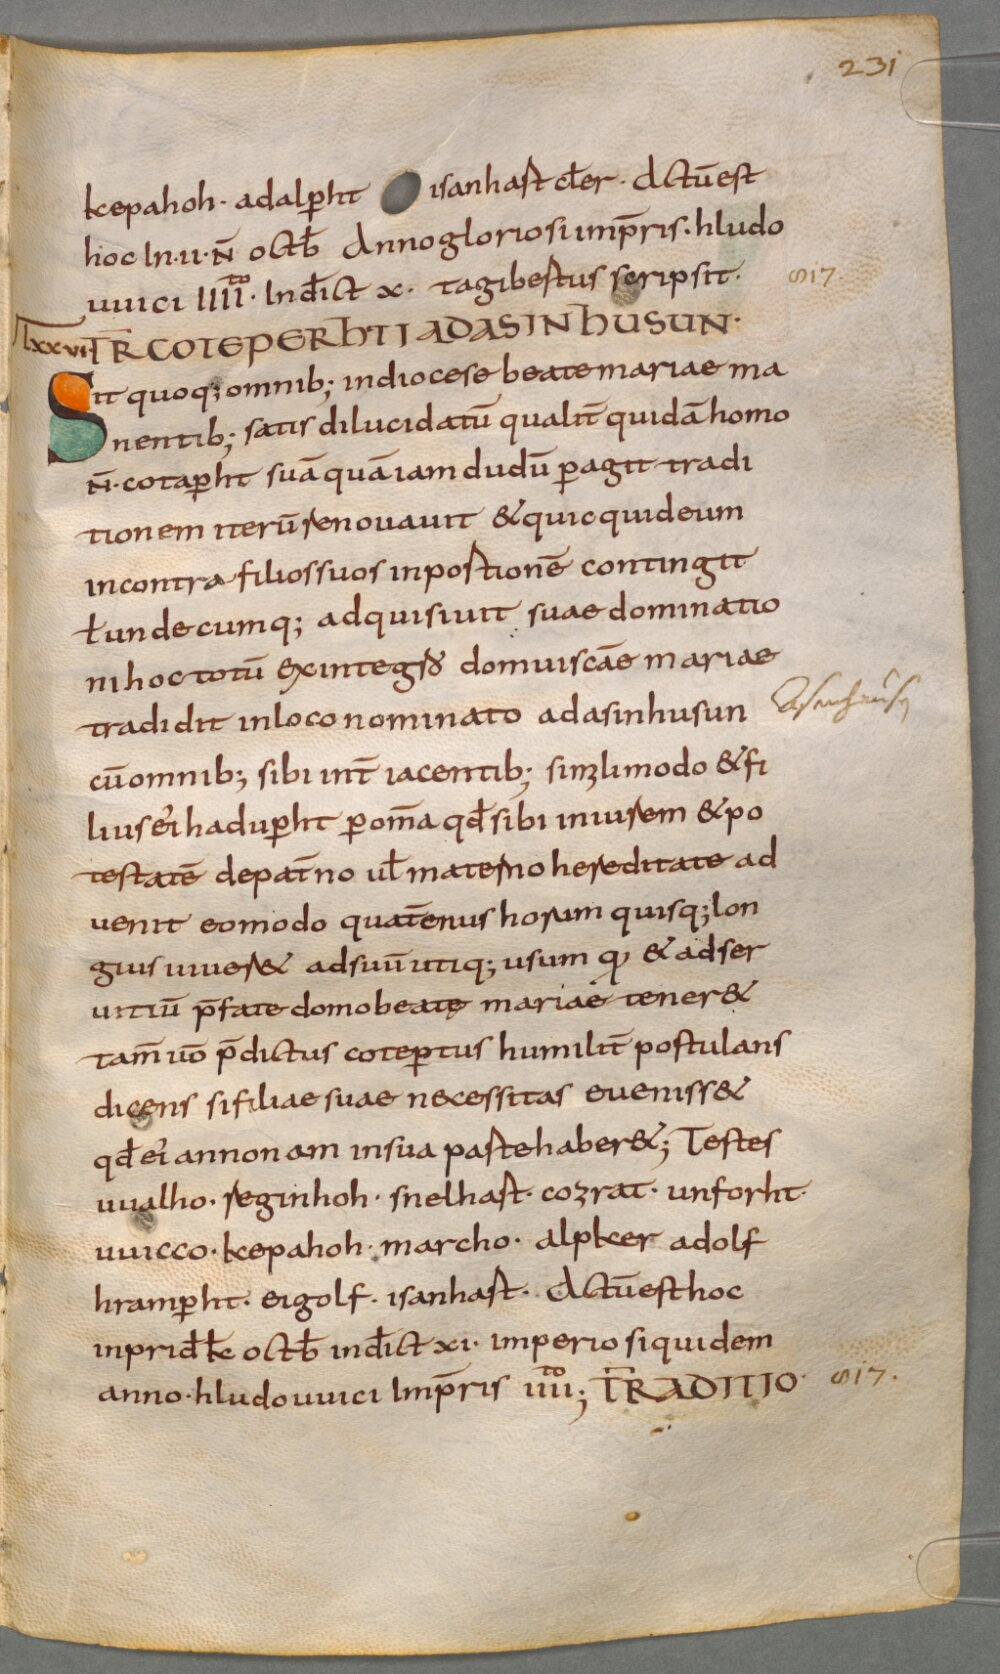 231
kepahoh· adalꝑht isanhast cl̅er· Actū est
hoc In·ii·N̄ octb̄ Anno gloriosi imp̄ris· hludo
uuici IIII^to· Indict̄ x· tagibestus scripsit· 817·
lxxvii TR̄ COTEPERHTI AD ASINHUSUN·
Sit quoq; omnib; in diocese beate mariae ma
nentib; satis dilucidatū qualit̄ quidā homo
N̄· cotaꝑht suā quā iam dudū ꝑagit tradi
tionem iterū renouauit & quicquid eum
in contra filios suos in postionē contingit
ł undecumq; adquisiuit suae dominatio
ni hoc totū ex integro domui sc̄ae mariae
tradidit in loco nominato ad asinhusun Asenhausen
cū omnib; sibi int̄ iacentib; simili modo & fi
lius ei haduꝑht ꝑ om̄a qd̄ sibi in iusem & po
testatē de pat̄no ul̄ materno hereditate ad
uenit eo modo quat̄enus horum quisq; lon
gius uiuer& ad suū utiq; usum qͥ & ad ser
uitiū p̄fate domo beatę mariae tener&
tam̄ uō p̄dictus coteꝑtus humilit̄ postulans
dicens si filiae suae necessitas eueniss&
qd̄ ei annonam in sua paste haber&; Testes
uualho· reginhoh· snelhast· cozrat· unforht·
uuicco· kepahoh· marcho· alpker adolf
hramꝑht· eigolf· isanhast· Actū est hoc
in prid̄ k̄ octb̄ indict̄ xi· imperio siquidem
anno· hludouuici Imp̄ris iiii^to; TRADITIO· 817.